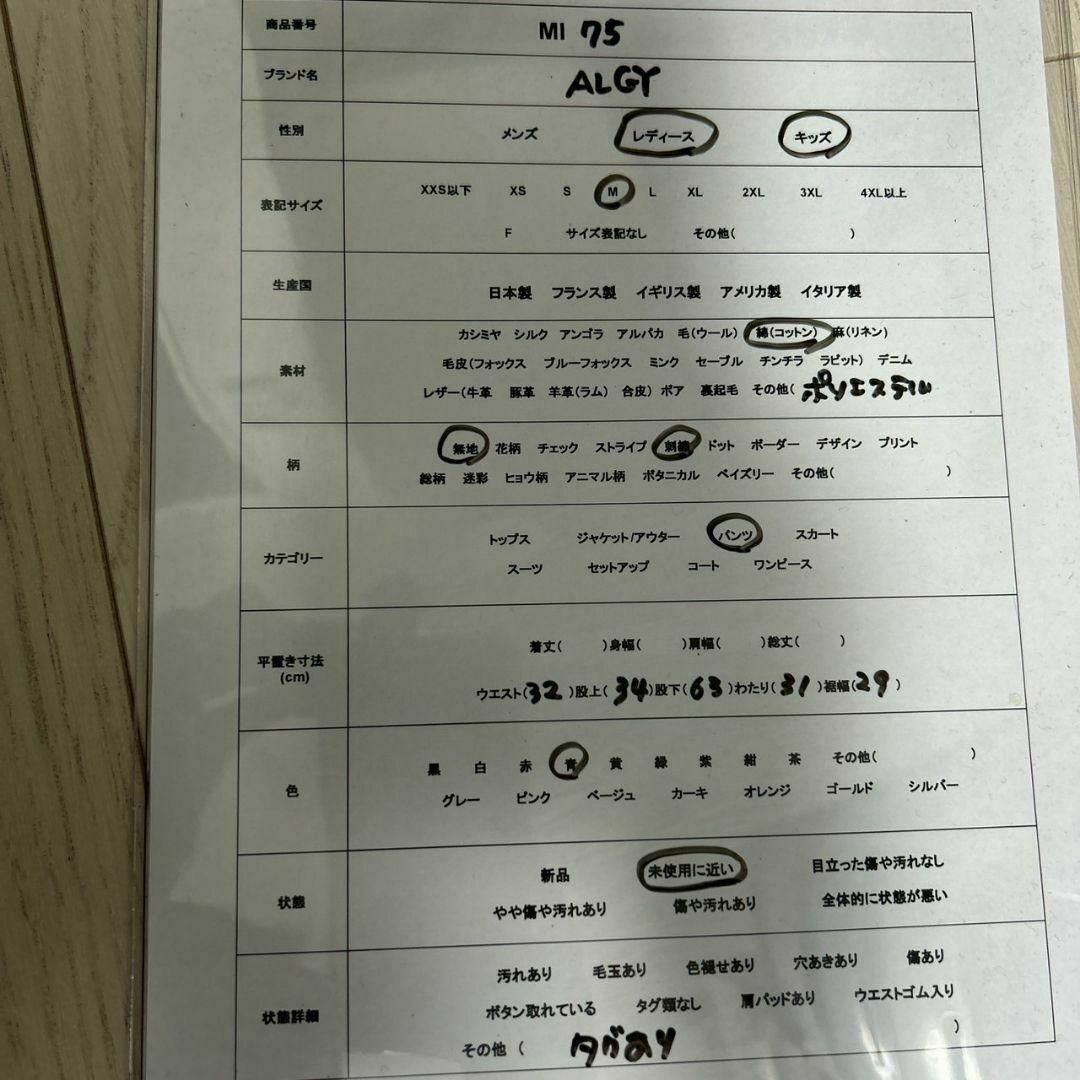 商品番号 MI 75
ブランド名 ALGY
性別 メンズ レディース キッズ
XXS以下 XS S M L XL 2XL 3XL 4XL以上
表記サイズ
F サイズ表記なし その他( )
生産国 日本製 フランス製 イギリス製 アメリカ製 イタリア製
カシミヤ シルク アンゴラ アルパカ 毛(ウール) 綿(コットン) 麻(リネン)
素材 毛皮(フォックス ブルーフォックス ミンク セーブル チンチラ ラビット) デニム
レザー(牛革 豚革 羊革(ラム) 合皮) ボア 裏起毛 その他( ポリエステル
無地 花柄 チェック ストライプ 刺繍 ドット ボーダー デザイン プリント
柄
総柄 迷彩 ヒョウ柄 アニマル柄 ボタニカル ペイズリー その他( )
トップス ジャケット/アウター パンツ スカート
カテゴリー
スーツ セットアップ コート ワンピース
着丈( )身幅( )肩幅( )総丈( )
平置き寸法
(cm)
ウエスト(32)股上(34)股下(63)わたり(31)裾幅(29)
黒 白 赤 青 黄 緑 紫 紺 茶 その他( )
色
グレー ピンク ベージュ カーキ オレンジ ゴールド シルバー
新品 未使用に近い 目立った傷や汚れなし
状態
やや傷や汚れあり 傷や汚れあり 全体的に状態が悪い
汚れあり 毛玉あり 色褪せあり 穴あきあり 傷あり
状態詳細 ボタン取れている タグ類なし 肩パッドあり ウエストゴム入り
その他 ( タグあり )